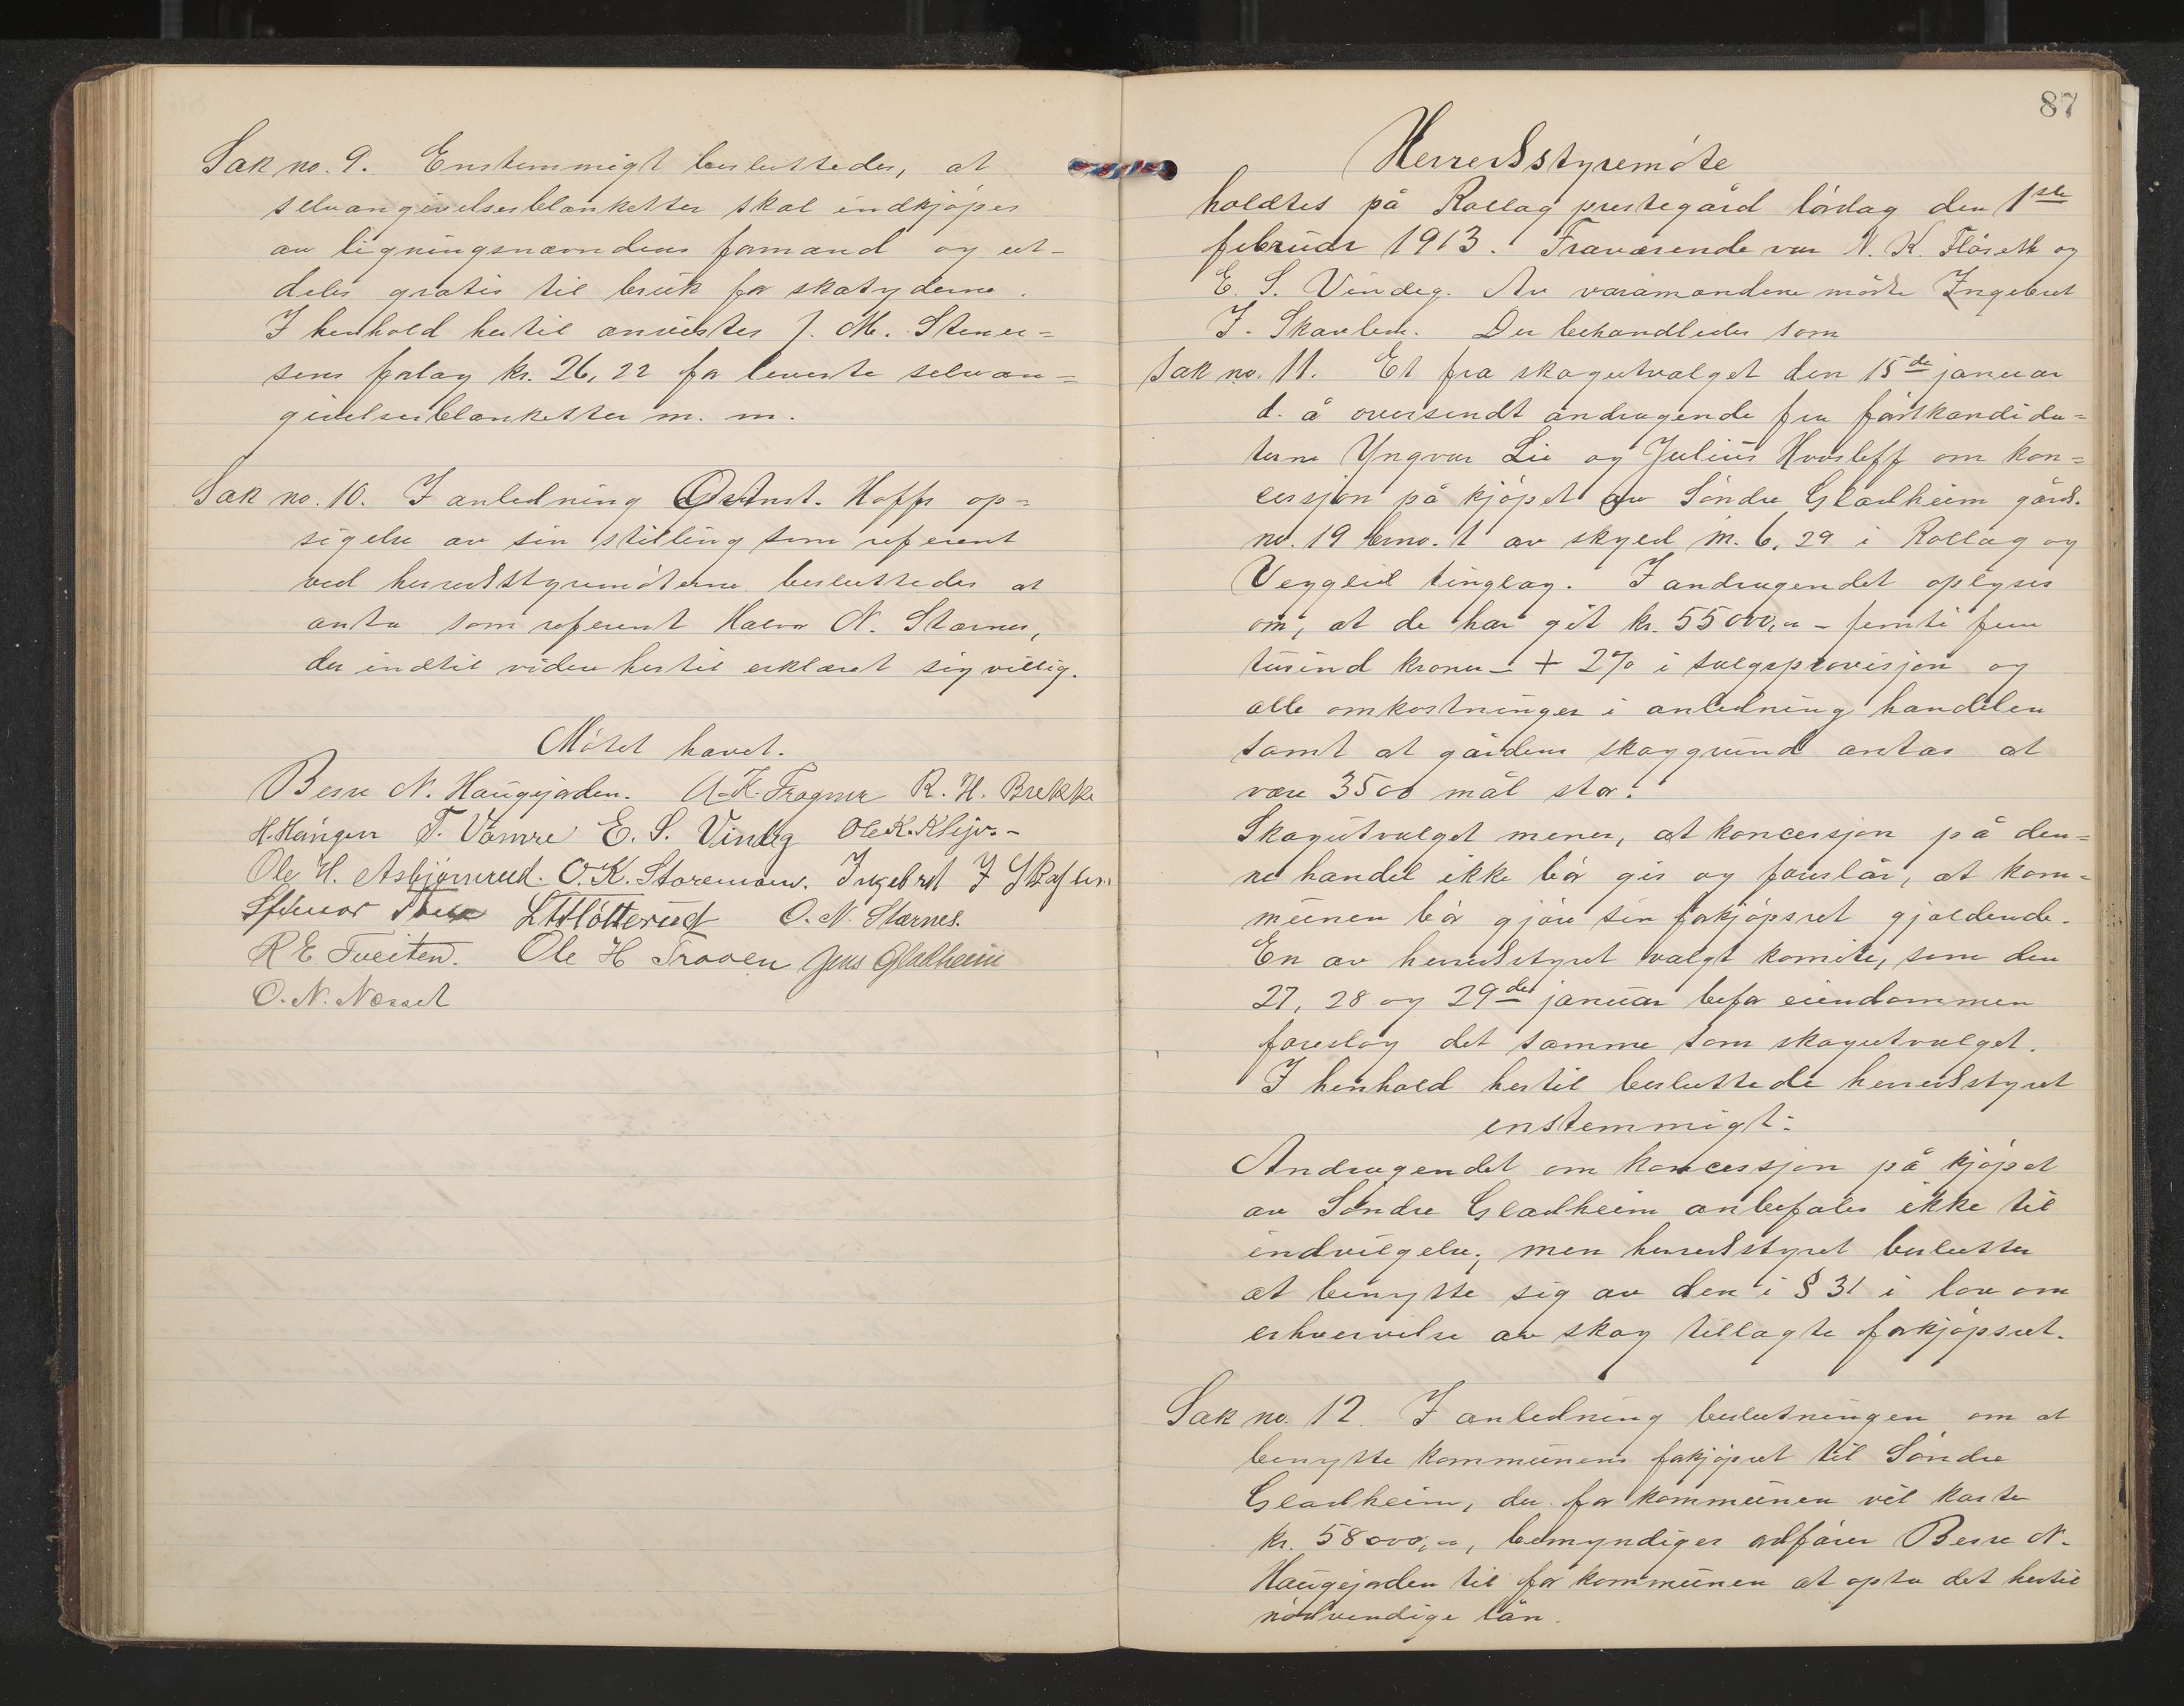 Sak no. 9. Enstemmigt besluttedes, at
selvangivelsesblanketter skal indkjöpes
av ligningsnævndens formand og ut-
deles gratis til bruk for skatyderne.
I henhold hertil anvistes J. M. Stener=
sens forlag kr. 26,22 for leverte selvan=
givelsesblanketter m. m.
Sak no. 10. I anledning Hoffs op=
sigelse av sin stilling som referent
ved herredsstyremöterne besluttedes at
anta som referent Halvor N. Stærnes,
der indtil videre hertil erklæret sig villig.
Mötet hævet.
Besse N. Haugejorden. A. K. Fragner R. H. Brekke
H. Haugen T. Vamre E. S. Vindeg Ole K. Klejv.-
Ole H. Asbjörnrud. O. K. Ingebret J Skaflem
L H Slötterud O. N. Stærnes.
R E Tveiten. Ole H Traaen Jens Gladheim
O. N. Næsset
87
Herredsstyremöte
holdtes på Rollag prestegård lördag den 1ste
februar 1913. Fraværende var N. K. Flöseth og
E. S. Vindeg. Av varamændene mödte Ingebret
J. Skavlem. Der behandledes som
Sak no. 11. Et fra skogutvalget den 15de januar
d. å oversendt andragende fra forstkandida=
terne Yngvar Lie og Julius Hvosleff om kon=
cessjon på kjöpet av Söndre Gladheim gårds.
no. 19 brno. 1 av skyld m. 6,29 i Rollag og
Vegglid tinglag. I andragendet oplyses
om, at de har git kr. 55000,00 - femti fem
tusind kroner - + 2% i salgsprovisjon og
alle omkostninger i anledning handelen
samt at gårdens skoggrund antas at
være 3500 mål stor.
Skogutvalget mener, at koncessjon på den=
ne handel ikke bör gis og foreslår, at kom=
munen bör gjöre sin forkjöpsret gjældende.
En av herredsstyret valgt komite, som den
27, 28 og 29de januar befor eiendommen
foreslog det samme som skogutvalget.
I henhold hertil besluttede herredsstyret
enstemmigt:
Andragendet om koncessjon på kjöpet
av Söndre Gladheim anbefales ikke til
indvilgelse, men herredsstyret beslutter
at benytte sig av den i § 31 i lov om
erhvervelse av skog tillagte forkjöpsret.
Sak no. 12. I anledning beslutningen om at
benytte kommunens forkjöpsret til Söndre
Gladheim, der for kommunen vil koste
kr. 58000,00, bemyndiges ordförer Besse N.
Haugejorden til for kommunen at opta det hertil
nödvendige lån.